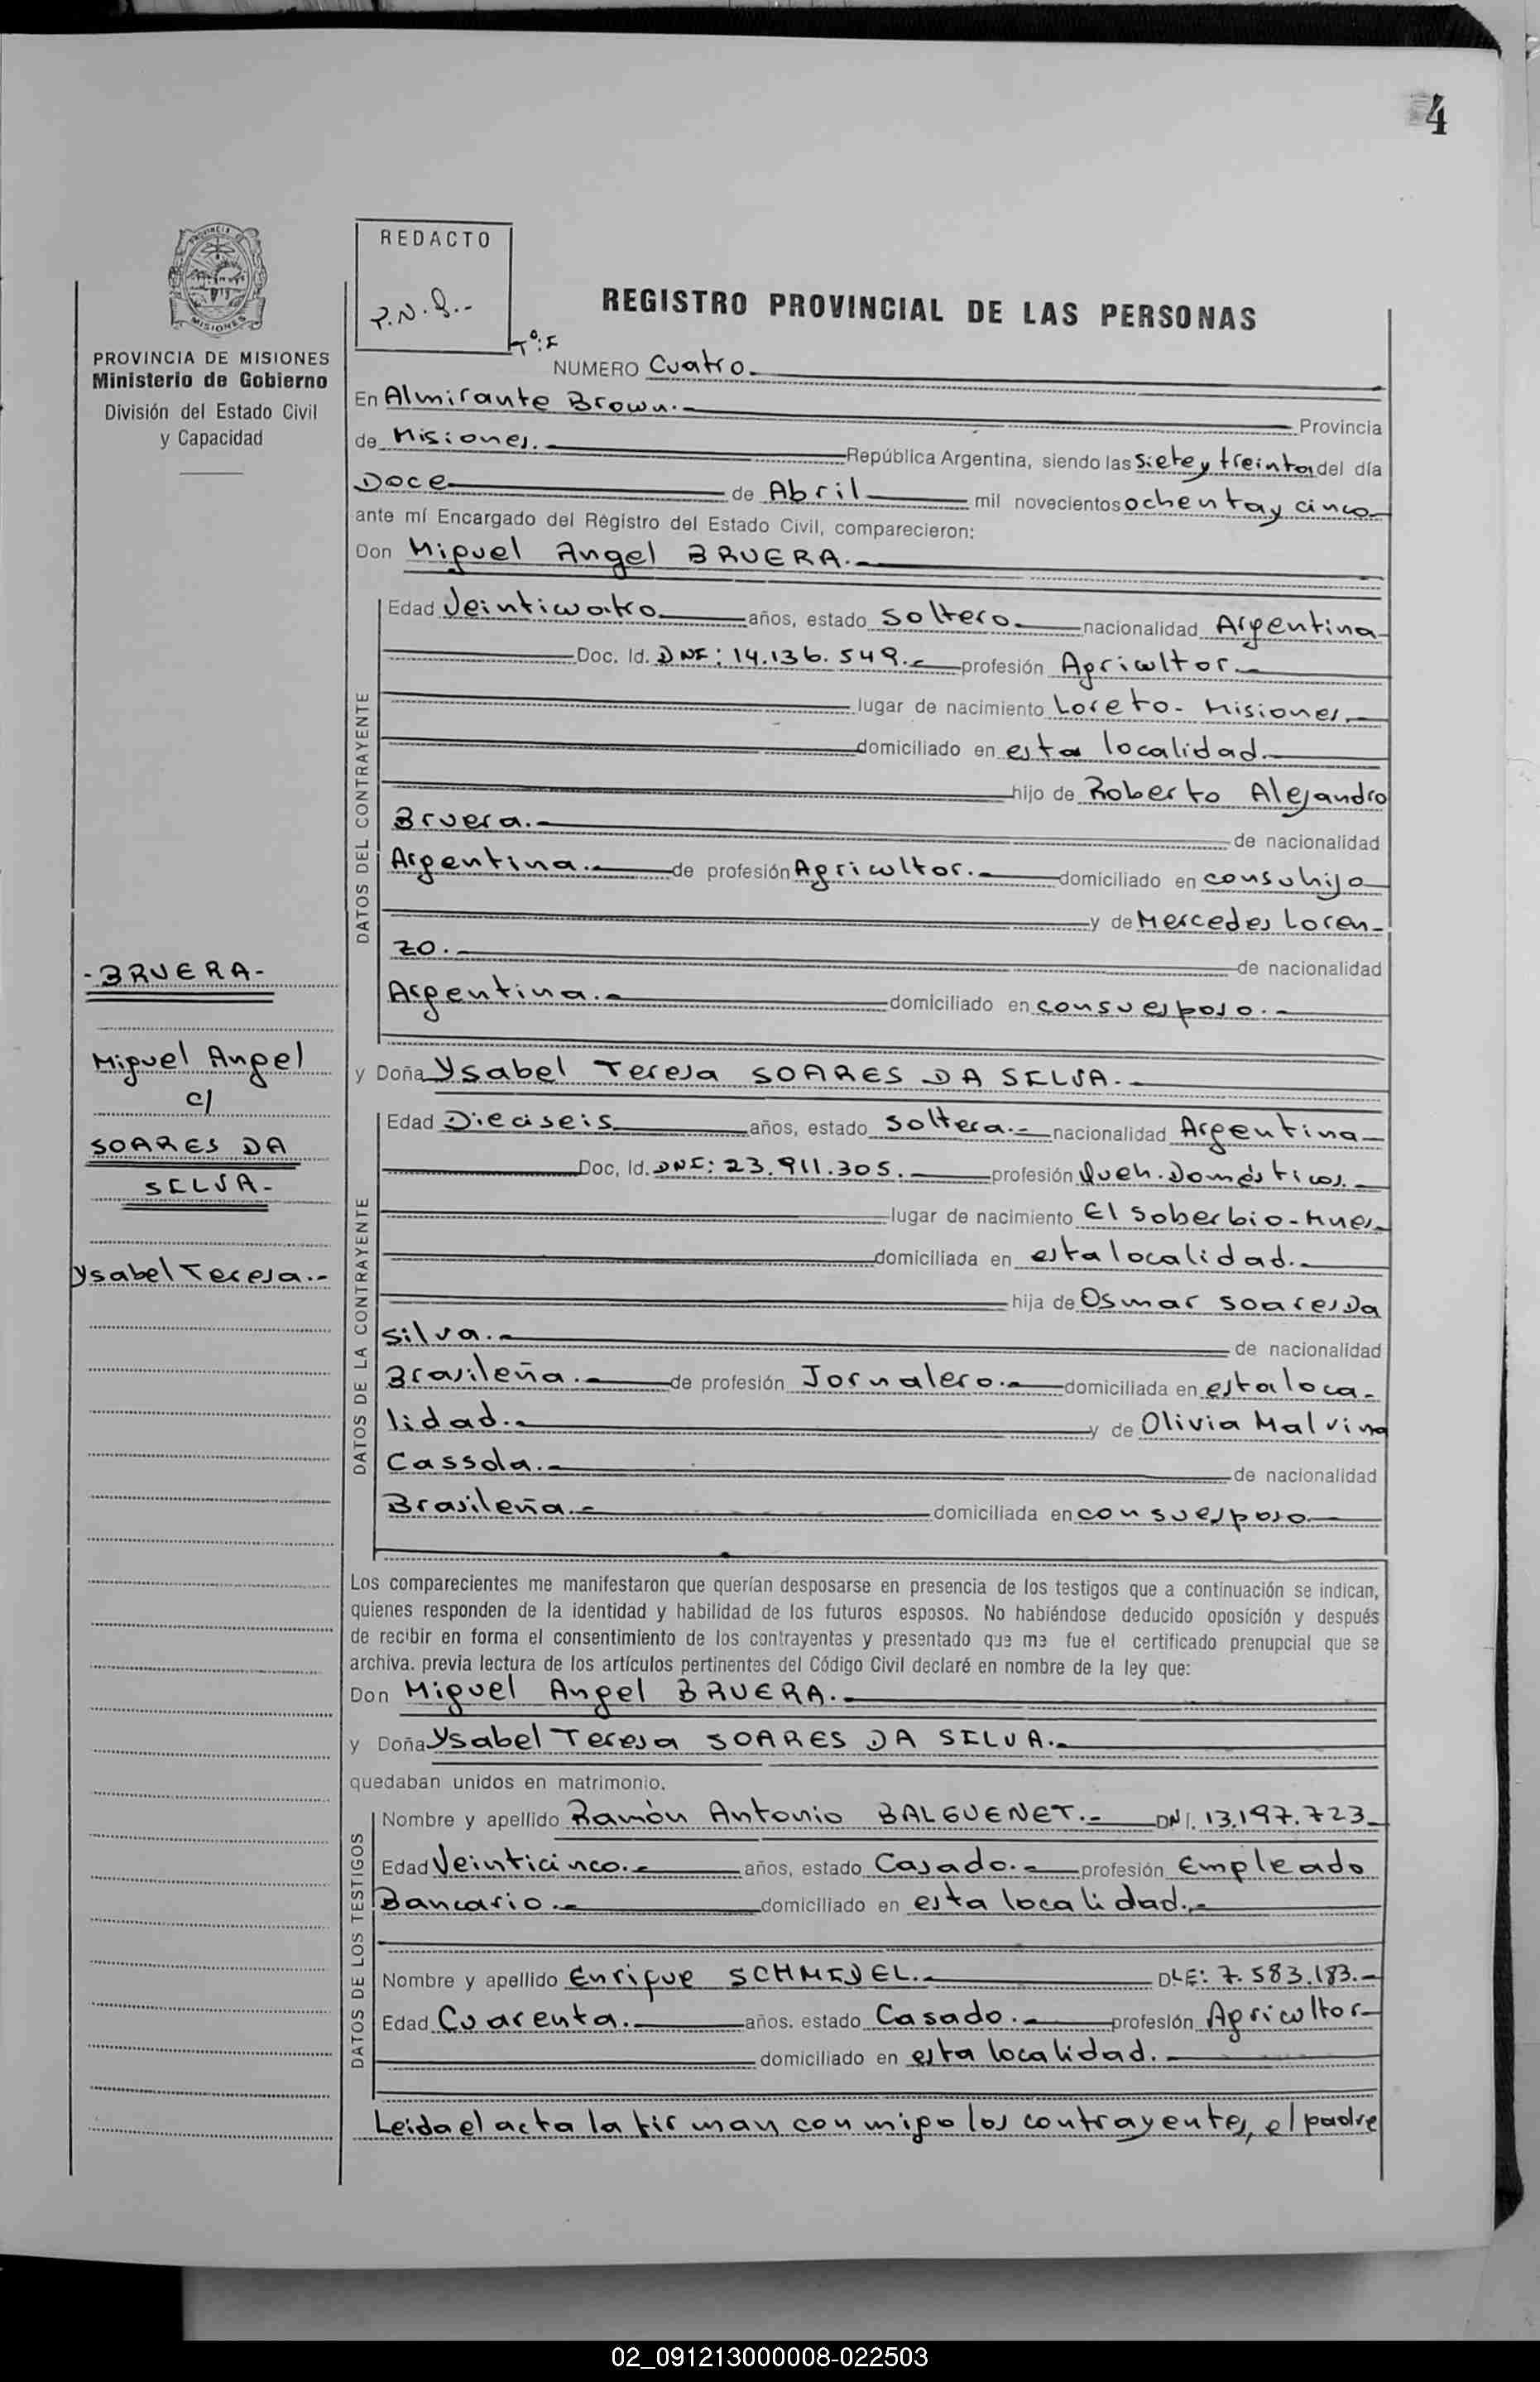 4
REDACTO
P.N.S.-
Tº: I
REGISTRO PROVINCIAL DE LAS PERSONAS
PROVINCIA DE MISIONES
Ministerio de Gobierno
División del Estado Civil
y Capacidad
NUMERO Cuatro.
En Almirante Brown.- Provincia
de Misiones.- República Argentina, siendo las siete y treinta del día
Doce de Abril mil novecientos ochenta y cinco
ante mí Encargado del Registro del Estado Civil, comparecieron:
Don Miguel Angel BRUERA.-
DATOS DEL CONTRAYENTE
Edad Veinticuatro años, estado soltero.- nacionalidad Argentina
Doc. Id. DNI: 14.136.549.- profesión Agricultor.-
lugar de nacimiento Loreto - Misiones.-
domiciliado en esta localidad.-
hijo de Roberto Alejandro
Bruera.- de nacionalidad
Argentina.- de profesión Agricultor.- domiciliado en con su hijo
y de Mercedes Loren-
zo.- de nacionalidad
Argentina.- domiciliado en con su esposo.-
-BRUERA-
Miguel Angel
c/
SOARES DA
SILVA-
Ysabel Teresa.-
y Doña Ysabel Teresa SOARES DA SILVA.-
DATOS DE LA CONTRAYENTE
Edad Dieciseis años, estado soltera.- nacionalidad Argentina
Doc. Id. DNI: 23.911.305.- profesión Queh. Domésticos.-
lugar de nacimiento El Soberbio-Mnes.
domiciliada en esta localidad.-
hija de Osmar Soares Da
Silva.- de nacionalidad
Brasileña.- de profesión Jornalero.- domiciliada en esta loca-
lidad.- y de Olivia Malvina
Cassola.- de nacionalidad
Brasileña.- domiciliada en con su esposo
Los comparecientes me manifestaron que querían desposarse en presencia de los testigos que a continuación se indican,
quienes responden de la identidad y habilidad de los futuros esposos. No habiéndose deducido oposición y después
de recibir en forma el consentimiento de los contrayentes y presentado que me fue el certificado prenupcial que se
archiva. previa lectura de los artículos pertinentes del Código Civil declaré en nombre de la ley que:
Don Miguel Angel BRUERA.-
y Doña Ysabel Teresa SOARES DA SILVA.-
quedaban unidos en matrimonio.
DATOS DE LOS TESTIGOS
Nombre y apellido Ramón Antonio BALGUENET.- DNI. 13.197.723
Edad Veinticinco.- años, estado Casado.- profesión Empleado
Bancario.- domiciliado en esta localidad.-
Nombre y apellido Enrique SCHMIDEL.- DLE: 7.583.183.-
Edad Cuarenta.- años. estado Casado.- profesión Agricultor
domiciliado en esta localidad.-
Leida el acta la firman conmigo los contrayentes, el padre
02_091213000008-022503